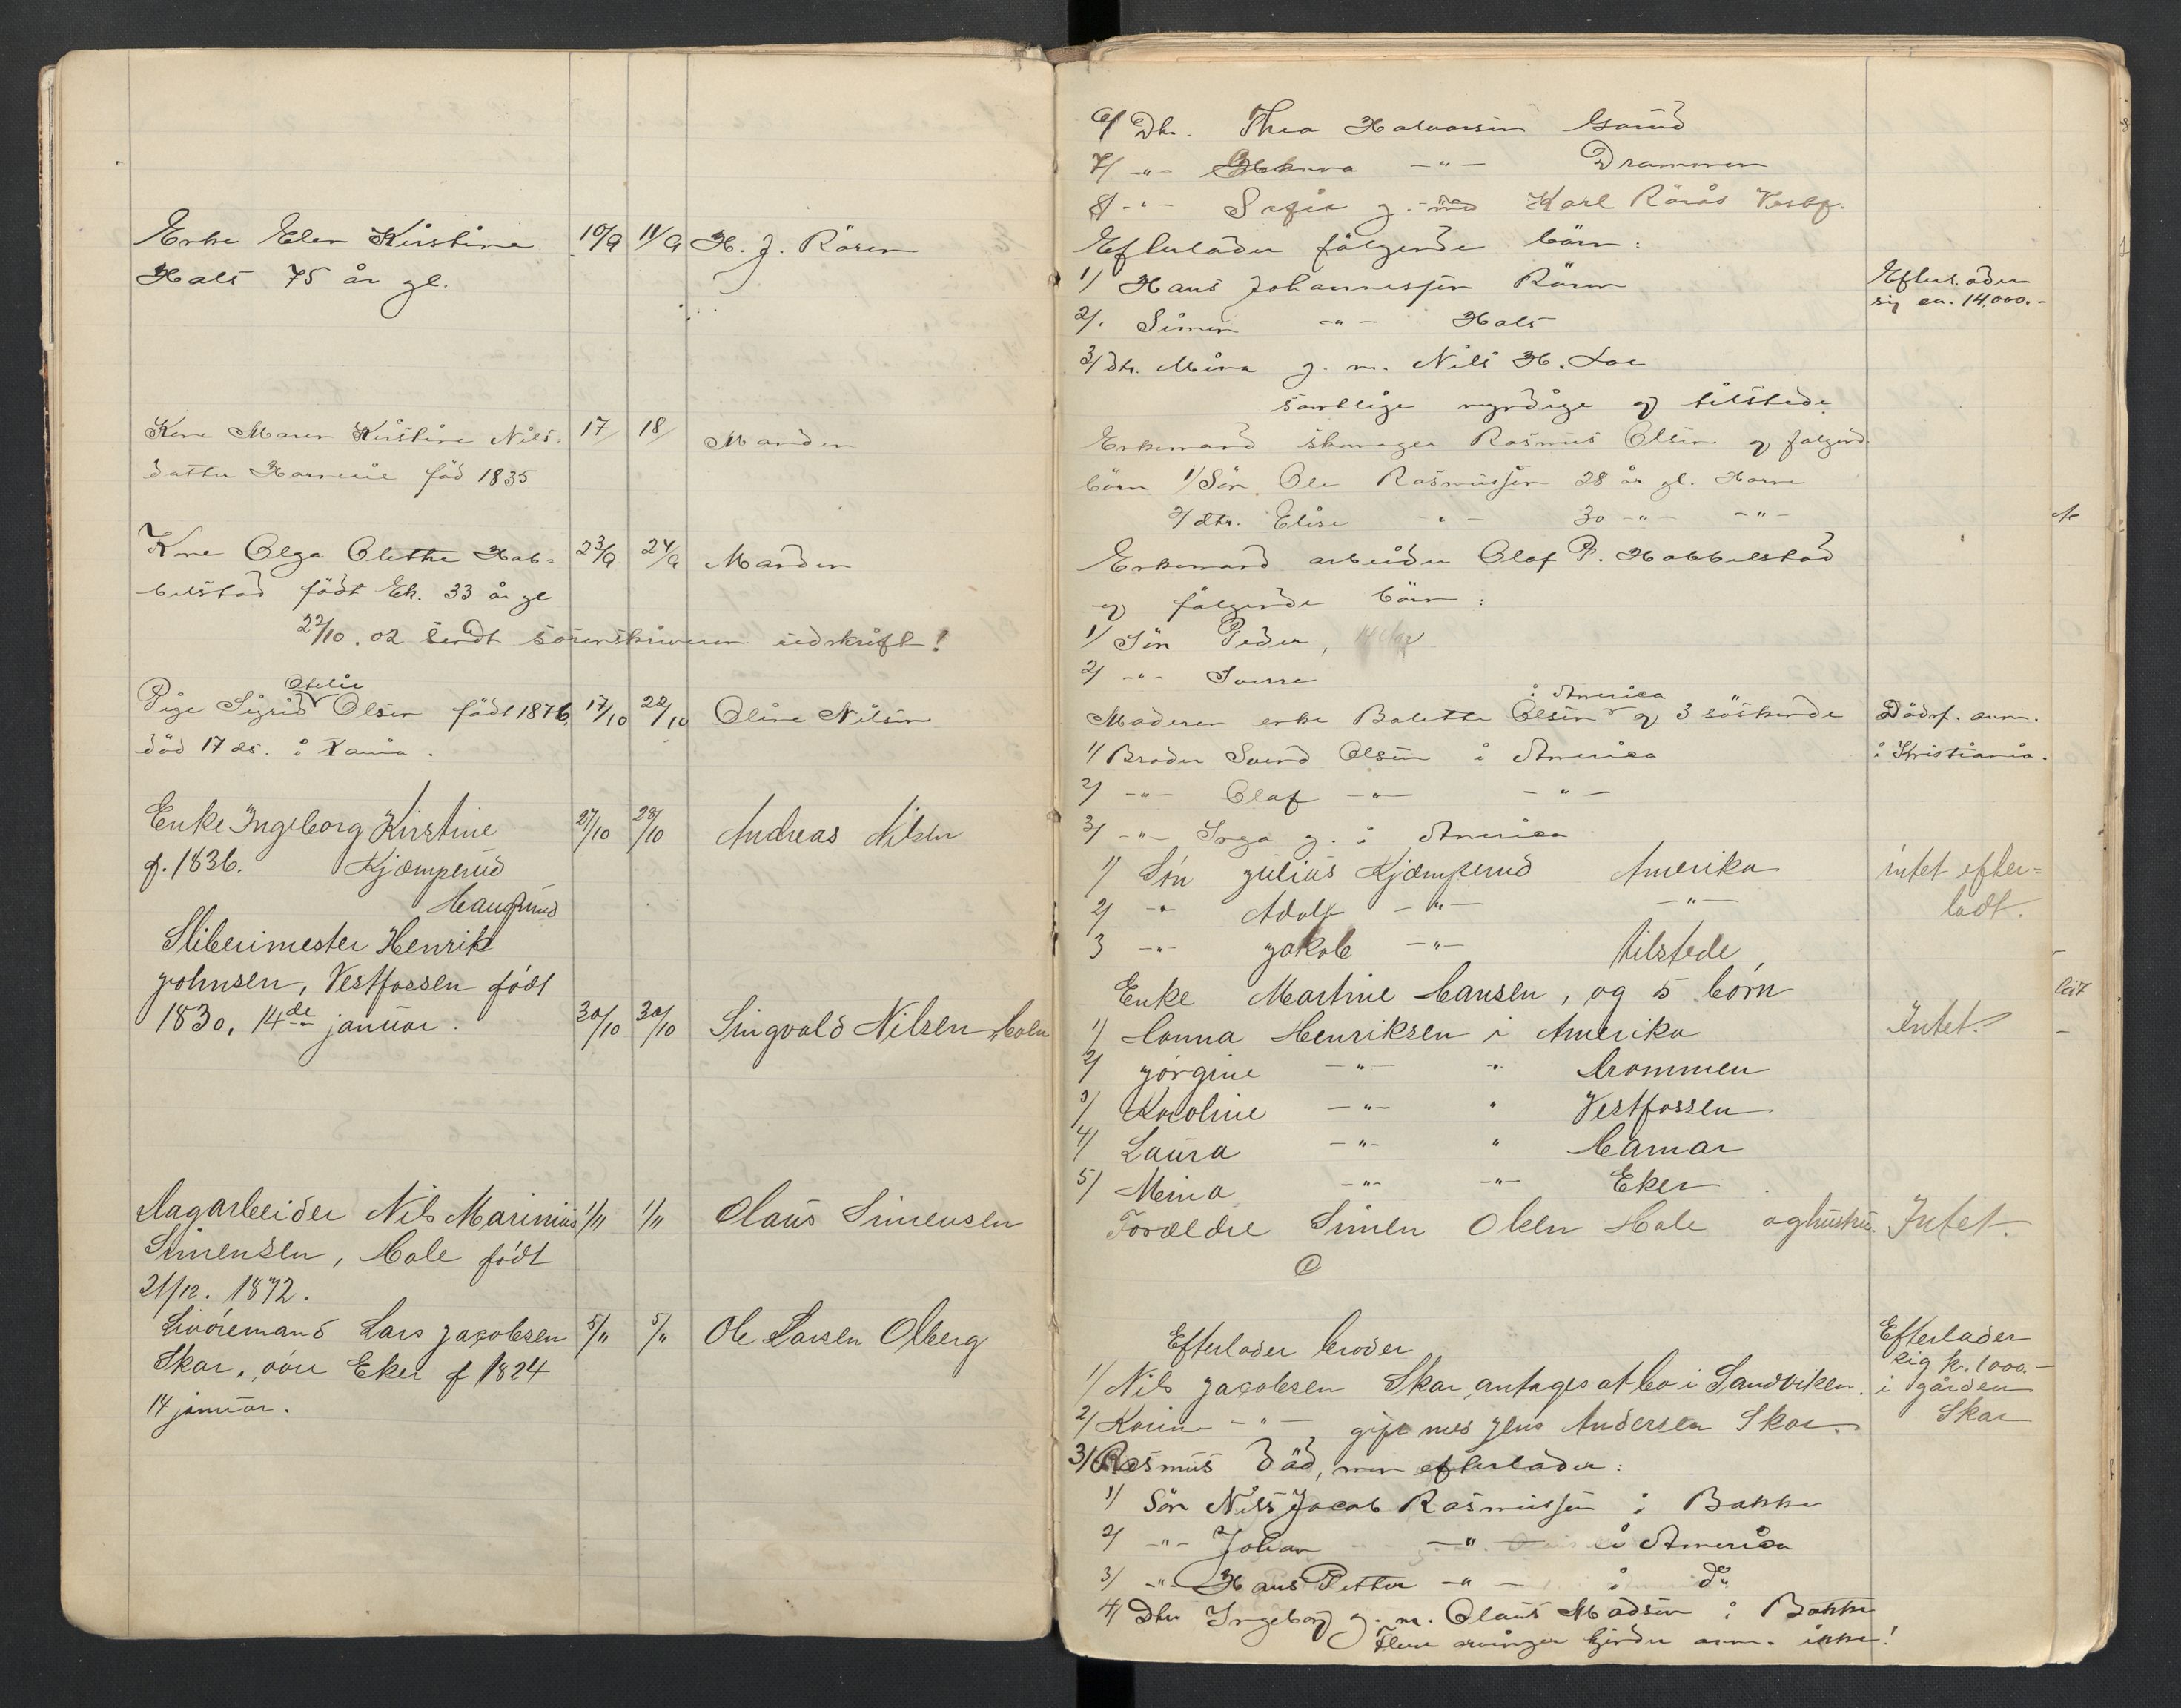 Enke Elen Kirstine 10/9 11/9 H. J. Rören
Hals 75 år gl.
Kone Maren Kirstine Nils- 17/ 18/ Manden
datter Horneie föd 1835
Kone Olga Olethe Hob- 23/9 24/9 Manden
belstad födt Ek. 33 år gl
22/10.02 sendt sorenskriveren udskrift!
Otelie
Pige Sigrid Olsen födt 1876, 17/10 22/10 Oline Nilsen
död 17 ds. i Xania.
Enke Ingeborg Kirstine 27/10 28/10 Andreas Nilsen
f. 1836. Kjæmperud
Haugsund
Sliberimester Henrik
Johnsen, Vestfossen födt
1830, 14de januar. 30/10 30/10 Singvald Nilsen Holm
Dagarbeider Nils Marinius 1/11 1/11 Olaus Simensen
Simensen, Hole födt
21/12. 1872.
Livöremand Lars Jacobsen 5/11 5/11 Ole Larsen Olberg
Skar, övre Eker f 1824
14 januar.
6/ Dtr. Thea Halvorsen
7/ -"- -"- Drammen
8/ -"- Sofie g. med Karl Rörås Vestf.
Efterlader fölgende börn:
1/ Hans Johannessen Rören Efterlader
sig ca. 14,000.-
2/. Simen -"- Hals
3/ dtr. Mina g. m. Nils H. Loe
samtlige myndige og tilstede
Enkemand skomager Rasmus Olsen og fölgend
börn 1/ Sön Ole Rasmussen 28 år gl. Horne
2/ dtr. Elise -"- 30 -"- -"-
Enkemand arbeider Olaf P. Hobbelstad
og fölgende börn:
1/ Sön Peder,
2/ -"- Sverre
i America
Moderen enke Bolette Olsen og 3 söskende Dödsf. anm.
1/ Broder Svend Olsen i America i Kristiania.
2/ -"- Olaf -"- -"-
3/ -"- Inga g. i America
1/ Sön Julius Kjæmperud Amerika intet efter=
2/ -"- Adolf -"- -"- ladt.
3 -"- Jakob -"- tilstede,
Enke Martine Hansen, og 5 börn
1/ Hanna Henriksen i Amerika Intet.
2/ Jörgine -"- " Drammen
3/ Karoline -"- " Vestfossen
4/ Laura -"- " Hamar
5/ Mina -"- -"- Eker
Forældre Simen Olsen Hole og hustru. Intet.
Efterlader broder Efterlader
sig k. 1000.-
1/ Nils Jacobsen Skar, antages at bo i Sandviken. i gården
2/ Karine -"- gift med Jens Andersen Skar. Skar
3/ Rasmus död, men efterlader:
1/ Sön Nils Jacob Rasmussen i Bakke
2/ -"- Johan -"- i America
3/ -"- Hans Petter -"- i do
4/ Dtr Ingeborg g. m. Olaus Madsen i Bakke
Flere arvinger kjender anm. ikke!